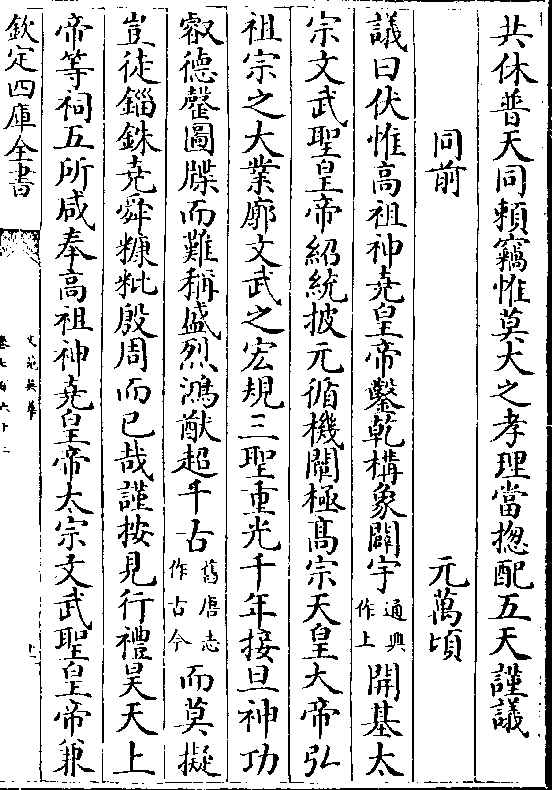 共休普天同賴竊惟莫大之孝理當揔配五天謹議
同前 元萬頃
議曰伏惟高祖神堯皇帝鑿乾構象闢宇通典作上開基太
宗文武聖皇帝紹統披元循機闡極高宗天皇大帝弘
祖宗之大業廓文武之宏規三聖重光千年接旦神功
叡德罄圖牒而難稱盛烈鴻猷超千古舊唐志作古今而莫擬
豈徒錙銖堯舜糠粃殷周而已哉謹按見行禮昊天上
帝等祠五所咸奉高祖神堯皇帝太宗文武聖皇帝兼
欽定四庫全書
文苑英華
卷七百六十二